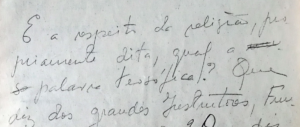 E a respeito da religião, pro
priamente dita, qual a
palavra teosófica? Que
diz dos grandes Instrutores, Fun